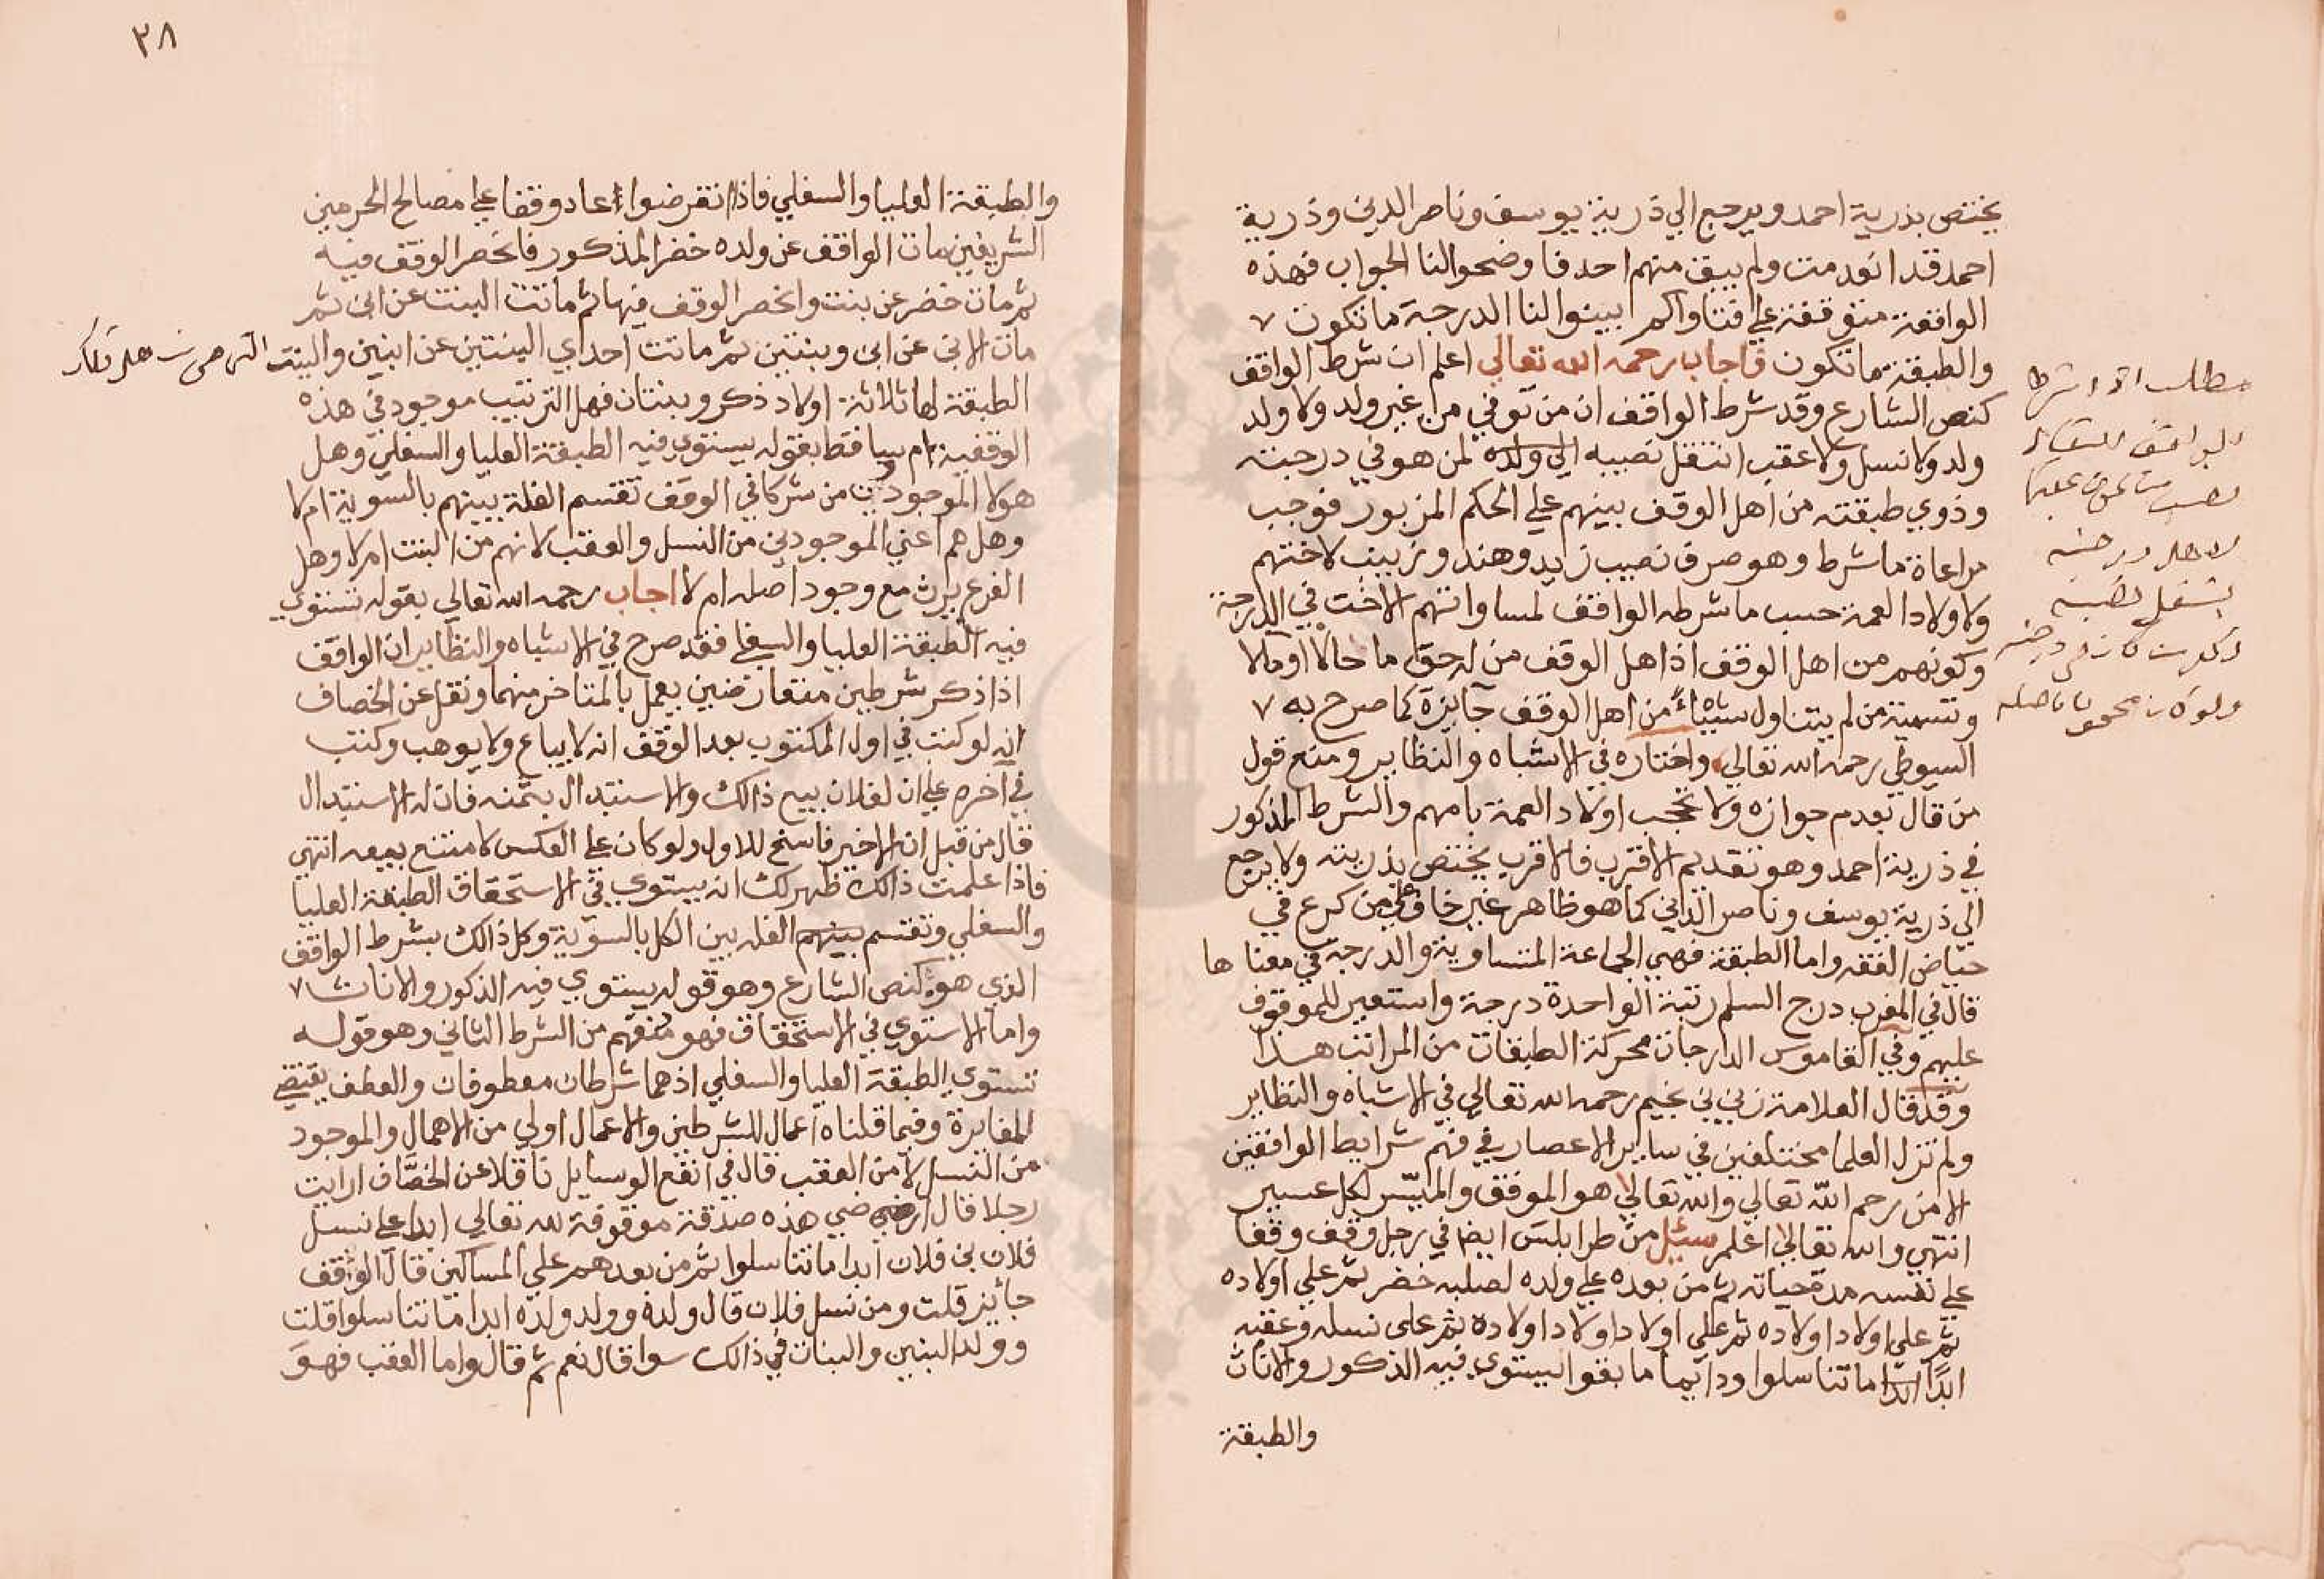 يختص بذرية احمد ويرجع الي ذرية يوسف وناصر الدين وذرية
احمد قد انعدمت ولم يبق منهم احد فاوضحوا لنا الجواب فهذه
الواقعة متوقفة علي فتاواكم ابينوا لنا الدرجة ما تكون ٧
والطبقة ما تكون فاجاب رحمه الله تعالي اعلم ان شرط الواقف
كنص الشارع وقد شرط الواقف ان من توفي من غير ولد ولا ولد
ولد ولا نسل ولا عقب انتقل نصيبه الي ولده لمن هو في درجته
وذوي طبقته من اهل الوقف بينهم علي الحكم المزبور فوجب
مراعاة ما شرط وهو صرف نصيب زيد وهند وزينب لاختهم
ولاولاد العمة حسب ما شرطه الواقف لمساواتهم الاخت في الدرجة
وكونهم من اهل الوقف اذ اهل الوقف من له حق ما حالا او مالا
وتسمية من لم يتناول شيئا من اهل الوقف جايزة كما صرح به ٧
السيوطي رحمه الله تعالي واختاره في الاشباه والنظاير ومنع قول
من قال بعدم جوازه ولا تحجب اولاد العمة بامهم والشرط المذكور
في ذرية احمد وهو تقديم الاقرب فالاقرب يختص بذريته ولا يرجع
الي ذرية يوسف وناصر الدين كما هو ظاهر غير خاف علي من كرع في
حياض الفقه واما الطبقة فهي الجماعة المتساوية والدرجة في معناها
قال في المغرب درج السلم رتبة الواحدة درجة واستعير للموقوف
عليهم وفي القاموس الدرجات محركة الطبقات من المراتب هذا
وقد قال العلامة زين بن نجيم رحمه الله تعالي في الاشباه والنظاير
ولم تزل العلما مختلفين في ساير الاعصار في فهم شرايط الواقفين
الا من رحم الله تعالي والله تعالي هو الموفق والميسر لكل عسير
انتهي والله تعالي اعلم سئل من طرابلس ايضا في رجل وقف وقفا
علي نفسه مدة حياته ثم من بعده علي ولده لصلبه خضر ثم علي اولاده
ثم علي اولاد اولاده ثم علي اولاد اولاد اولاده ثم على نسله وعقبه
ابدا ابدا ما تناسلوا ودايما ما بقوا يستوي فيه الذكور والاناث
والطبقة
مطلب اذا شرط
الواقف انتقال
نصيب من مات عقيما
لاهل درجته
ينتقل نصيبه
٣٨
والطبقة العليا والسفلي فاذا انقرضوا عاد وقفا علي مصالح الحرمين
الشريفين مات الواقف عن ولده خضر المذكور فانحصر الوقف فيه
ثم مات خضر عن بنت وانحصر الوقف فيها ثم ماتت البنت عن ابن ثم
مات الابن عن ابن وبنتين ثم ماتت احداي البنتين عن ابنين والبنت
الطبقة لها ثلاثة اولاد ذكر وبنتان فهل الترتيب موجود في هذه
الوقفية ام ساقط بقوله يستوي فيه الطبقة العليا والسفلي وهل
هولا الموجودين من شركا في الوقف تقسم الغلة بينهم بالسوية ام لا
وهل هم اعني الموجودين من النسل والعقب لانهم من البنت ام لا وهل
الفرع يرث مع وجود اصله ام لا اجاب رحمه الله تعالي بقوله تستوي
فيه الطبقة العليا والسفلي فقد صرح في الاشباه والنظاير ان الواقف
اذا ذكر شرطين متعارضين يعمل بالمتاخر منهما ونقل عن الخصاف
انه لو كتب في اول المكتوب بعد الوقف انه لا يباع ولا يوهب وكتب
في اخره علي ان لفلان بيع ذالك والاستبدال بثمنه فان له الاستبدال
قال من قبل ان الاخير فاسخ للاول ولو كان علي العكس لامتنع بيعه انتهي
فاذا علمت ذالك ظهر لك انه يستوي في الاستحقاق الطبقة العليا
والسفلي وتقسم بينهم الغله بين الكل بالسوية وكل ذالك بشرط الواقف
الذي هو كنص الشارع وهو قوله يستوي فيه الذكور والاناث ٧
واما الاستوي في الاستحقاق فهو منفهم من الشرط الثاني وهو قوله
تستوي الطبقة العليا والسفلي اذ هما شرطان معطوفان والعطف يقتضي
المغايرة وفيما قلناه اعمال للشرطين والاعمال اولي من الاهمال والموجود
من النسل لا من العقب قال في انفع الوسايل ناقلا عن الخصاف ارايت
رجلا قال ارضي هذه صدقة موقوفة لله تعالي ابدا علي نسل
فلان بن فلان ابدا ما تناسلوا ثم من بعدهم علي المساكين قال الوقف
جايز قلت ومن نسل فلان قال ولده وولد ولده ابدا ما تناسلوا قلت
وولد البنين والبنات في ذالك سوا قال نعم ثم قال واما العقب فهو